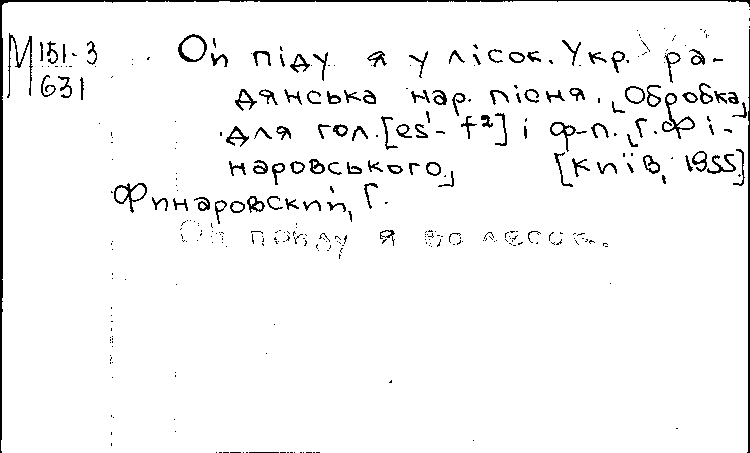 М 151-3
631
Ой піду я у лісок. Укр. ра-
дянська нар. пісня. [Обробка]
для гол. [es¹- f²] і ф-п. [Г. Фі-
наровського] [Київ, 1955]
Финаровский, Г.
Ой пойду я во лесок.